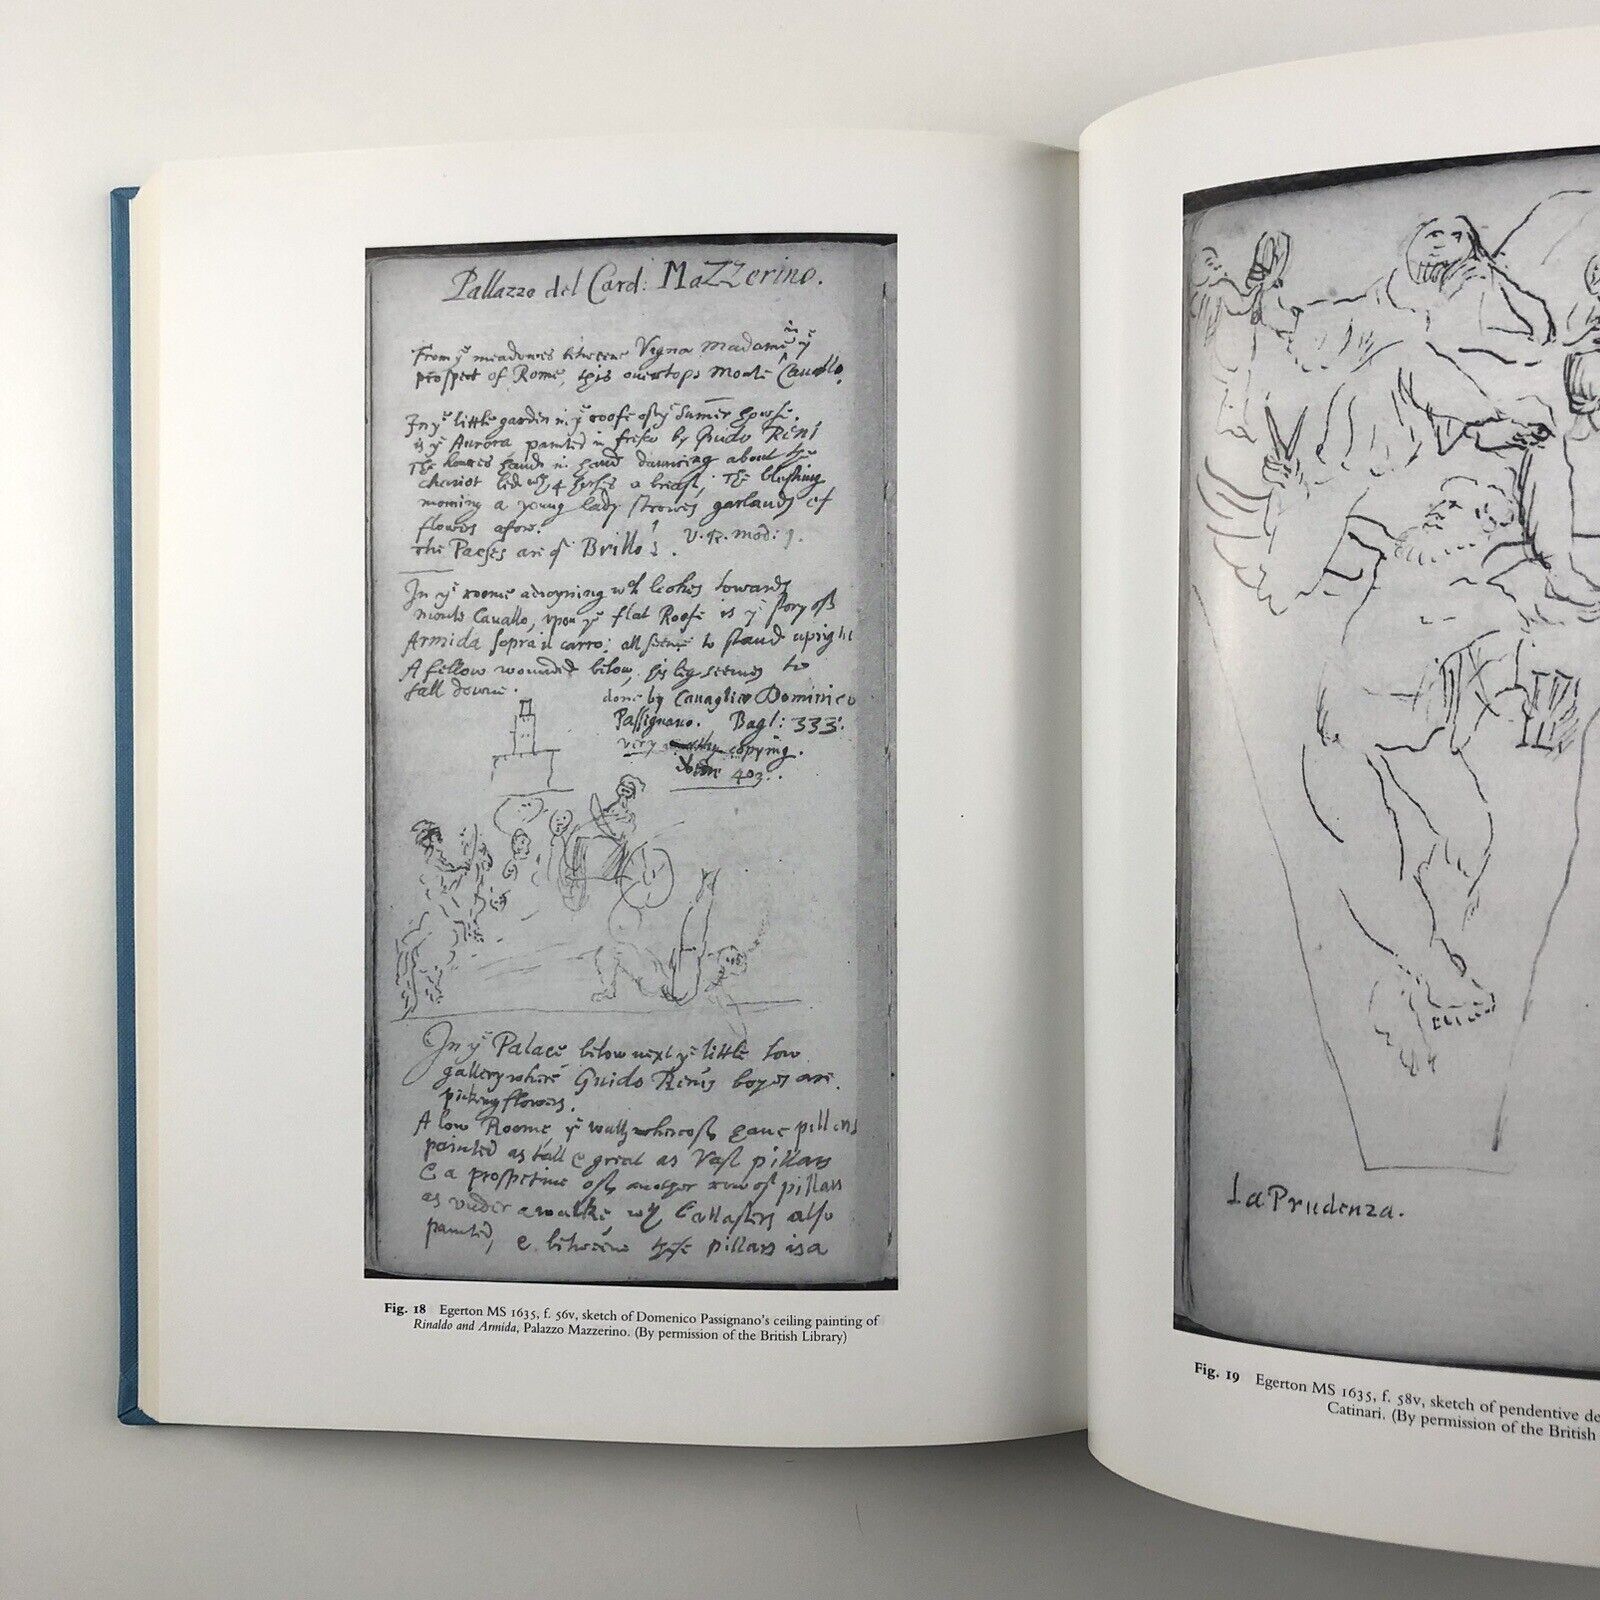 Pallazzo del Card: MaZZerino.
From yͤ meadowes betweene Vigna Madama in yͤ
prospect of Rome, this overtops Monte Cavallo.
In yͤ little garden in yͤ roofe of yͤ Sumer howse.
is yͤ Aurora painted in frisco by Guido Reni
The howres hand in hand dauncing about the
chariot led wth 4 horses a breast. The blushing
morning a young lady strowes garlands of
flowers afore.
The Paeses are of Brillos. V. R. mod: j.
In yͤ roome adioyning wch lookes towards
monte Cavallo, upon yͤ flat Roofe is yͤ story of
Armida sopra il carro: all seeme to stand upright
A fellow wounded below, his leg seemes to
fall downe.
done by Cavaglier Dominico
Passignano. Bagl: 333.
very copying.
403.
In yͤ Palace below next yͤ little low
gallery where Guido Renis boyes are
picking flowers.
A low Roome, yͤ walls whereof have pillars
painted as tall & great as Vast pillars
& a prospetive of another row of pillars
as under a walke, wth Ballasters also
painted, & betweene these pillars is a
Fig. 18 Egerton MS 1635, f. 56v, sketch of Domenico Passignano's ceiling painting of
Rinaldo and Armida, Palazzo Mazzerino. (By permission of the British Library)
La Prudenza.
Fig. 19 Egerton MS 1635, f. 58v, sketch of pendentive de
Catinari. (By permission of the British